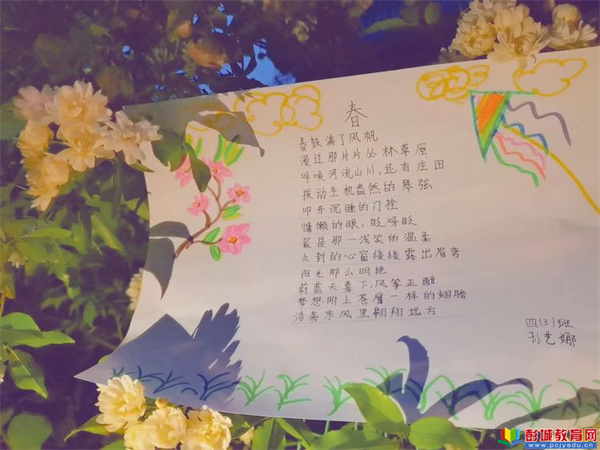 春
春鼓满了风帆
漫过那片片丛林草原
呼唤河流山川,还有庄园
拨动生机盎然的琴弦
叩开沉睡的门拴
慵懒的眼,眨呀眨
最是那一浅笑的温柔
久封的心窗缓缓露出眉弯
阳光那么明艳
蔚蓝天幕下,风筝正酣
梦想附上苍鹰一样的翅膀
浩荡东风里翱翔远方
四(3)班
孙艺娜
彭城教育网
www.pcjyedu.cn